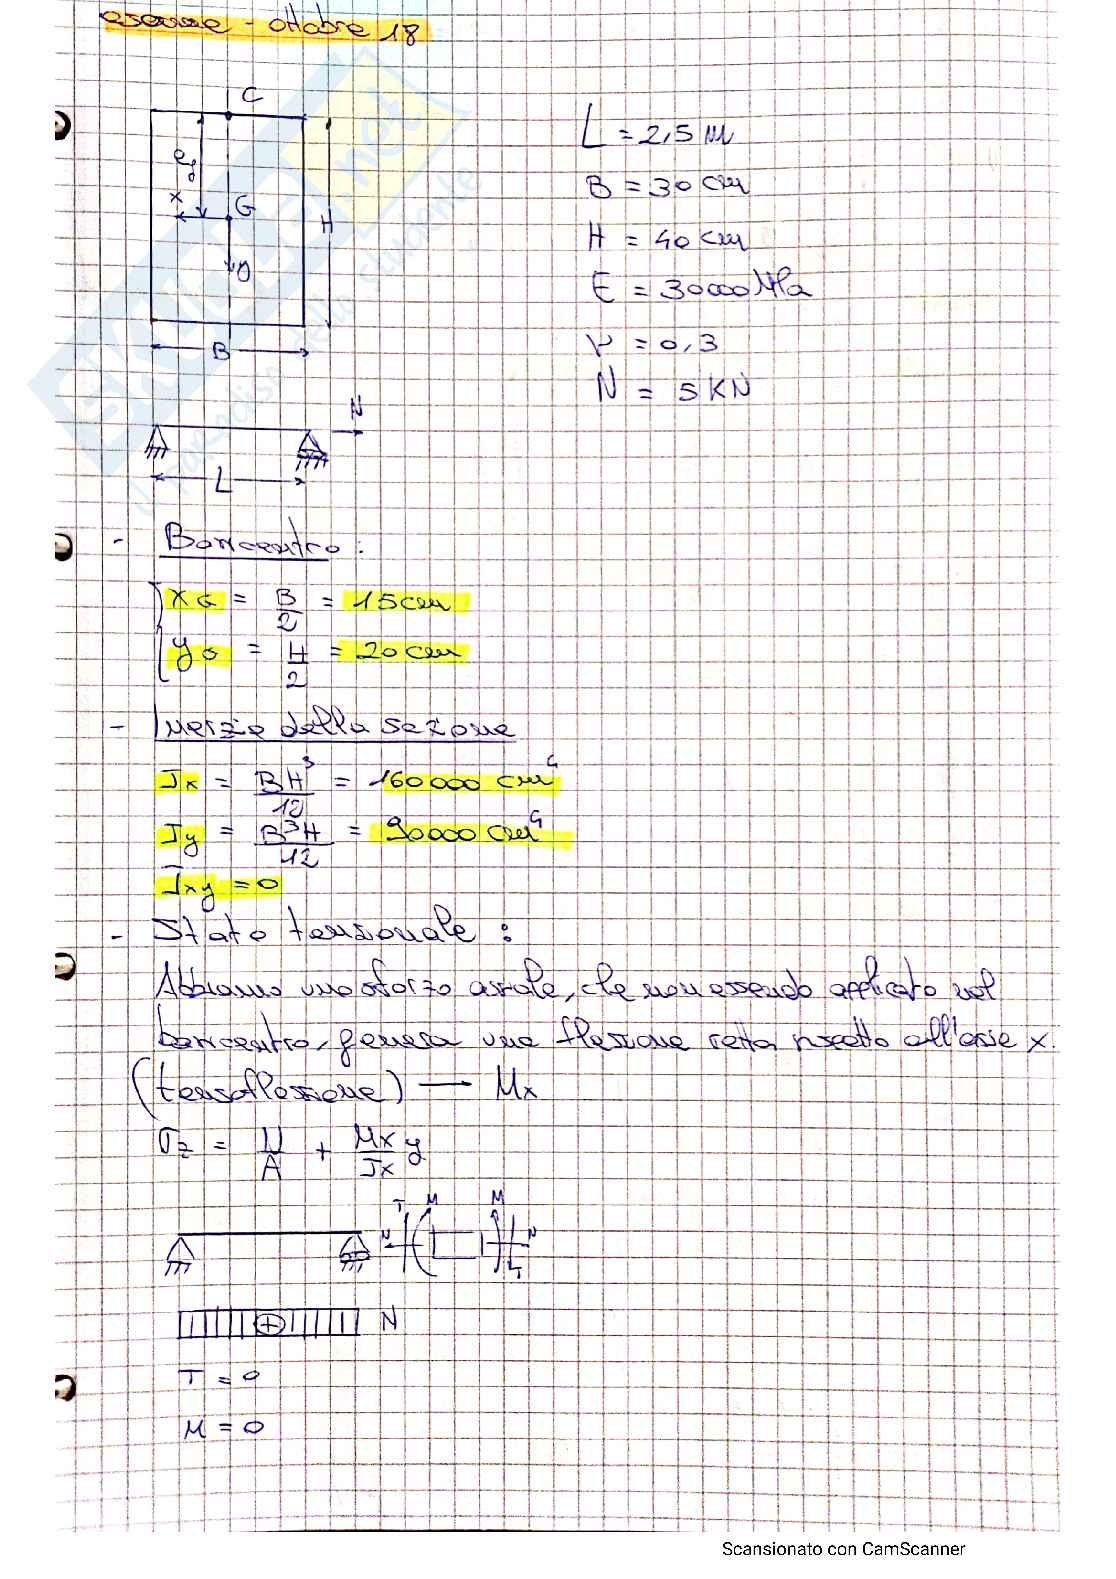 esame - ottobre 18
C
ey
x
G
H
y
B
L = 2,5 m
B = 30 cm
H = 40 cm
E = 30000 MPa
ν = 0,3
N = 5 KN
N
L
- Baricentro:
xG = B/2 = 15 cm
yG = H/2 = 20 cm
- Inerzie della sezione
Jx = BH³/12 = 160000 cm⁴
Jy = B³H/12 = 90000 cm⁴
Jxy = 0
- Stato tensionale:
Abbiamo uno sforzo assiale, che non essendo applicato nel
baricentro, genera una flessione retta rispetto all'asse x.
(tensoflessione) → Mx
σz = N/A + Mx/Jx y
T M M
N N
T
+ N
T = 0
M = 0
Scansionato con CamScanner